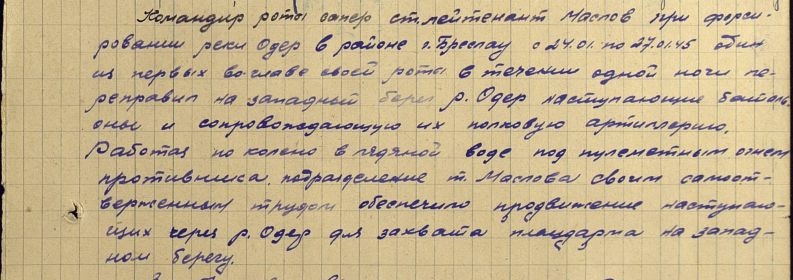 Командир роты сапер ст. лейтенант Маслов при форси-
ровании реки Одер в районе г. Бреслау с 24.01. по 27.01.45 один
из первых во главе своей роты в течении одной ночи пе-
реправил на западный берег р. Одер наступающие баталь-
оны и сопровождающую их полковую артиллерию.
Работая по колено в ледяной воде под пулеметным огнем
противника, подразделение т. Маслова своим самоот-
верженным трудом обеспечило продвижение наступаю-
щих через р. Одер для захвата плацдарма на запад-
ном берегу.